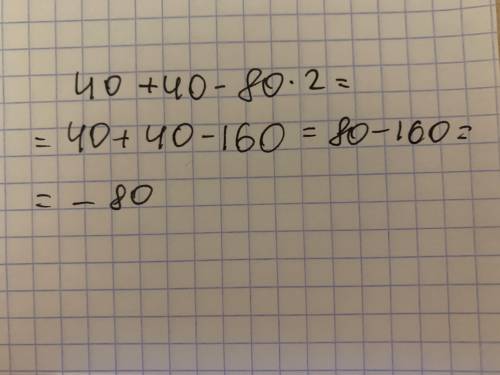 40 + 40 - 80 · 2 =
= 40 + 40 - 160 = 80 - 160 =
= - 80